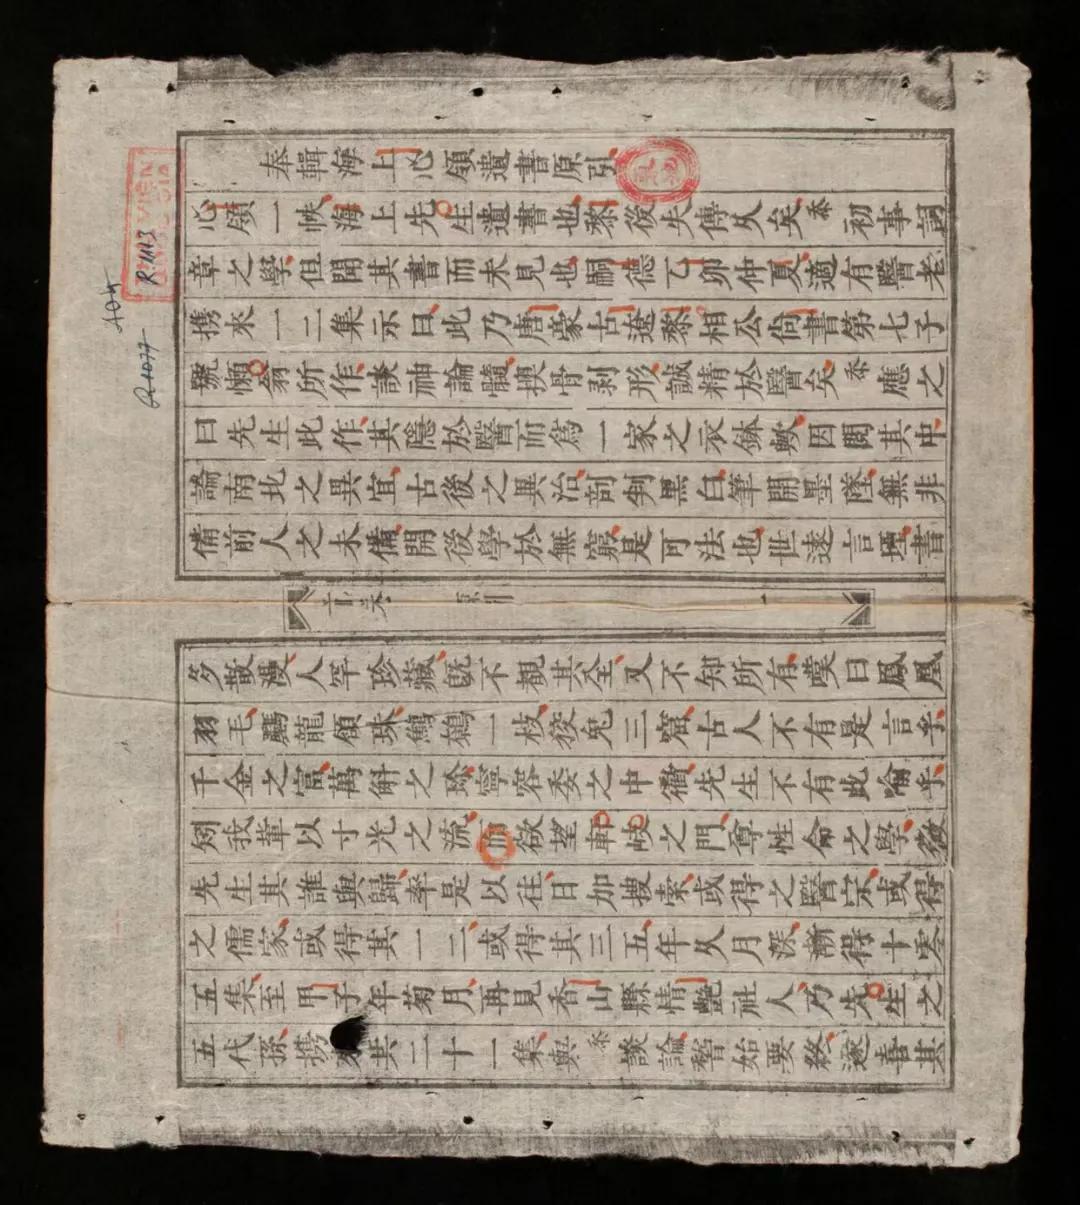 奉輯海上心領遺書原引
心領一帙海上先生遺書也黎後失傳久矣初事詞
章之學但聞其書而未見也嗣德乙卯仲夏適有醫老
携來一二集示曰此乃唐豪古遼黎相公尚書第七子
號懶翁所作談神論髓換骨剥形誠精於醫矣應之
曰先生此作其隱於醫而爲一家之衣鉢歟因閱其中
論南北之異宜古後之異治剖判黑白筆開墨墜無非
備前人之未備開後學於無窮是可法也世遠言堙書
首卷 原引 一
多散漫人罕珍藏既不觀其全又不知所有嘆曰鳳凰
羽毛驪龍頷珠鷦鷯一枝狡兔三窟古人不有是言乎
千金之富萬斛之珍寧容委之中衢先生不有此喻乎
矧我輩以寸光之流而欲望軒岐之門尊性命之學微
先生其誰與歸率是以往日加搜索或得之醫宗或得
之儒家或得其一二或得其三五年久月深漸得十零
五集至甲子年菊月再見香山縣情艷社人乃先生之
五代孫携共二十一集與談論始要終遂喜其
R 1113